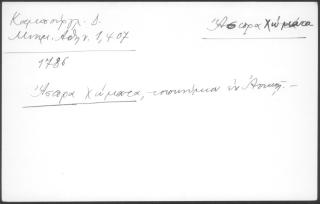 Καμπούρογλ. Δ.
Μνημ. Αθην. 1, 407
Ἄσπρα Χώματα
1786
Ἄσπρα Χώματα, τοπωνύμιο ἐν Ἀττικῇ. —